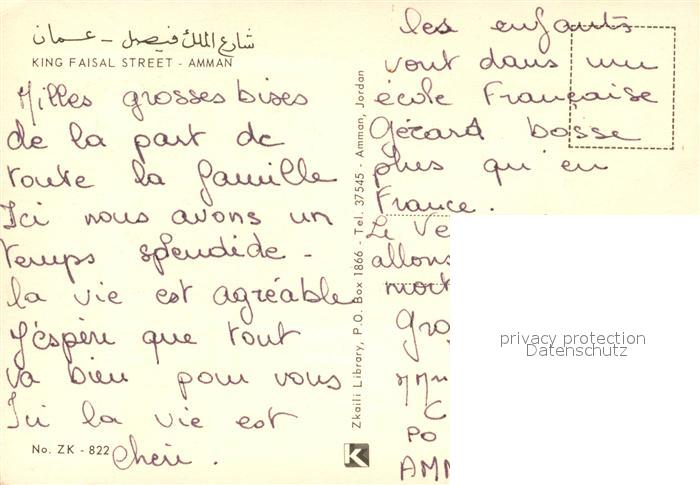 شارع الملك فيصل - عمان
KING FAISAL STREET - AMMAN
Milles grosses bises
de la part de
toute la famille
Ici nous avons un
temps splendide -
la vie est agréable
J'espère que tout
va bien pour vous
Ici la vie est
Chère.
No. ZK - 822
Zkaili Library, P.O. Box 1866 - Tel. 37545 - Amman, Jordan
K
les enfants
vont dans une
école Française
Gérard bosse
plus qu'en
France.
Le Ve
allons
mort
Gro
Mm
C
PO
AMM
privacy protection
Datenschutz